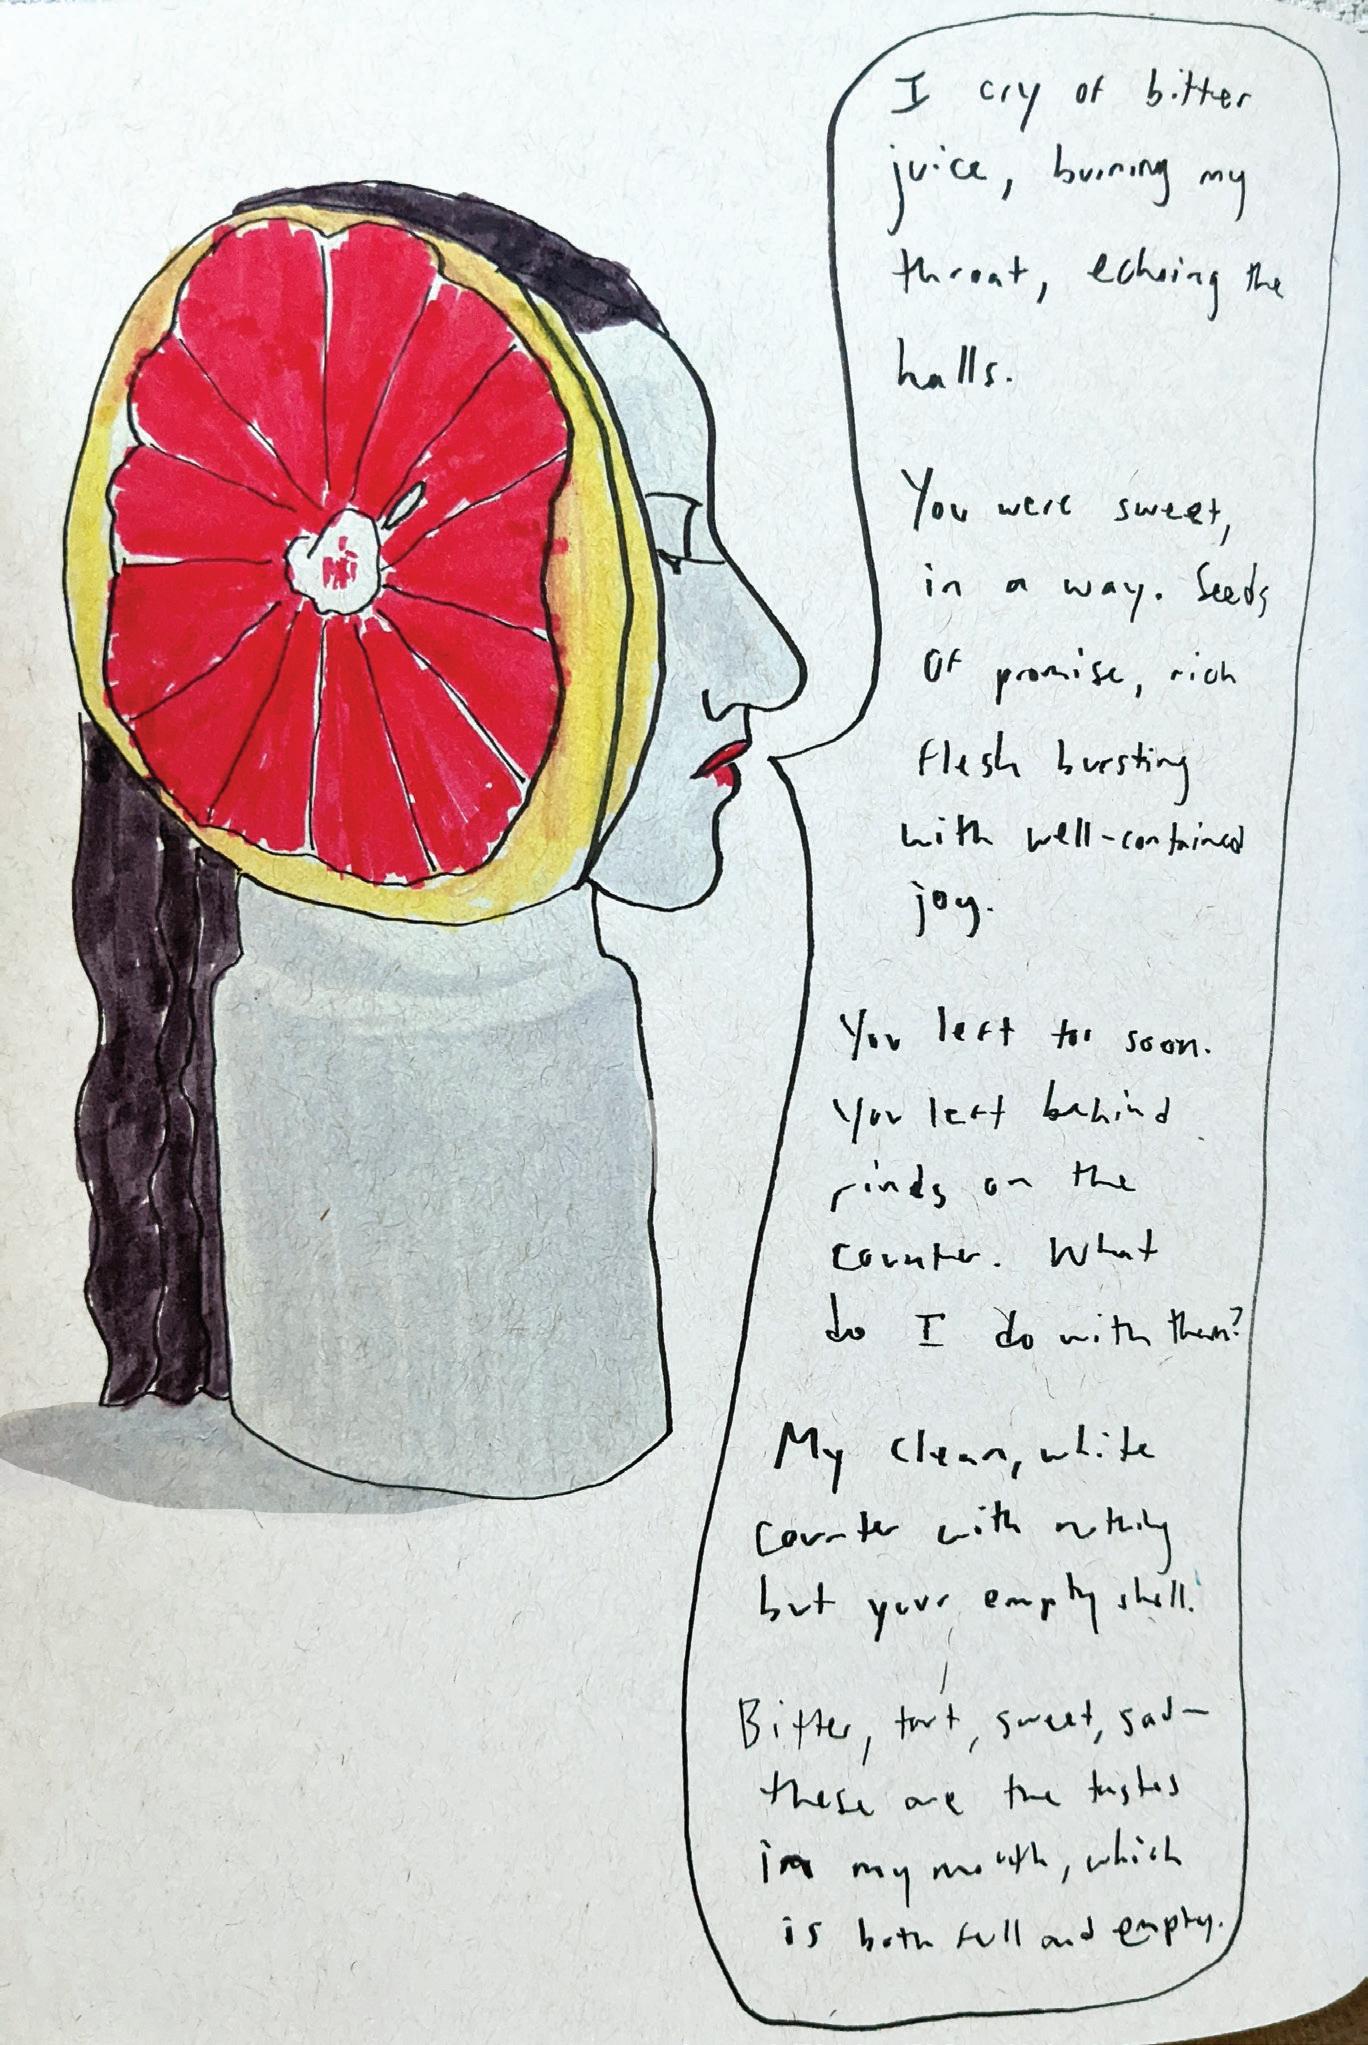 I cry of bitter
juice, burning my
throat, echoing the
halls.
You were sweet,
in a way. Seeds
of promise, rich
flesh bursting
with well-contained
joy.
You left too soon.
You left behind
rinds on the
counter. What
do I do with them?
My clean, white
counter with nothing
but your empty shell.
Bitter, tart, sweet, sad—
these are the tastes
in my mouth, which
is both full and empty.